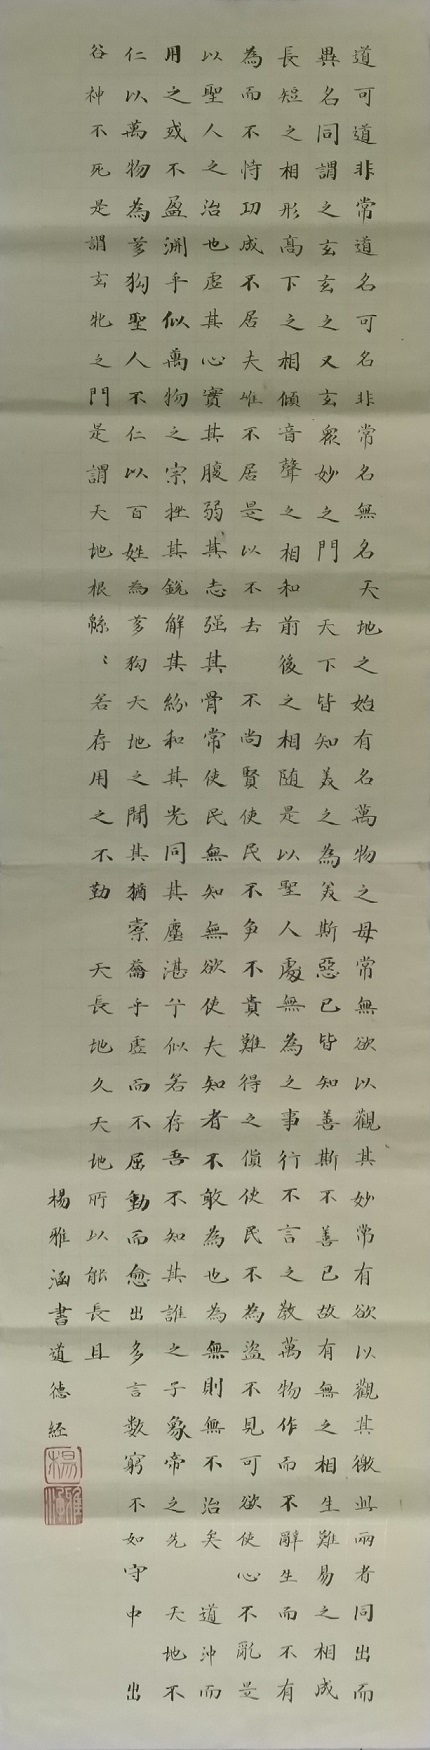 道可道非常道名可名非常名無名天地之始有名萬物之母常無欲以觀其妙常有欲以觀其徼此兩者同出而
異名同謂之玄玄之又玄眾妙之門 天下皆知美之為美斯惡已皆知善斯不善已故有無之相生難易之相成
長短之相形高下之相傾音聲之相和前後之相随是以聖人處無為之事行不言之教萬物作而不辭生而不有
為而不恃功成不居夫唯不居是以不去 不尚賢使民不争不貴難得之貨使民不為盜不見可欲使心不亂是
以聖人之治也虛其心實其腹弱其志强其骨常使民無知無欲使夫知者不敢為也為無則無不治矣 道沖而
用之或不盈淵乎似萬物之宗挫其銳解其紛和其光同其塵湛兮似若存吾不知其誰之子象帝之先 天地不
仁以萬物為芻狗聖人不仁以百姓為芻狗天地之間其猶橐籥乎虛而不屈動而愈出多言数窮不如守中 出
谷神不死是謂玄牝之門是謂天地根緜〻若存用之不勤 天長地久天地所以能長且
楊雅涵書道德經
楊
雅涵